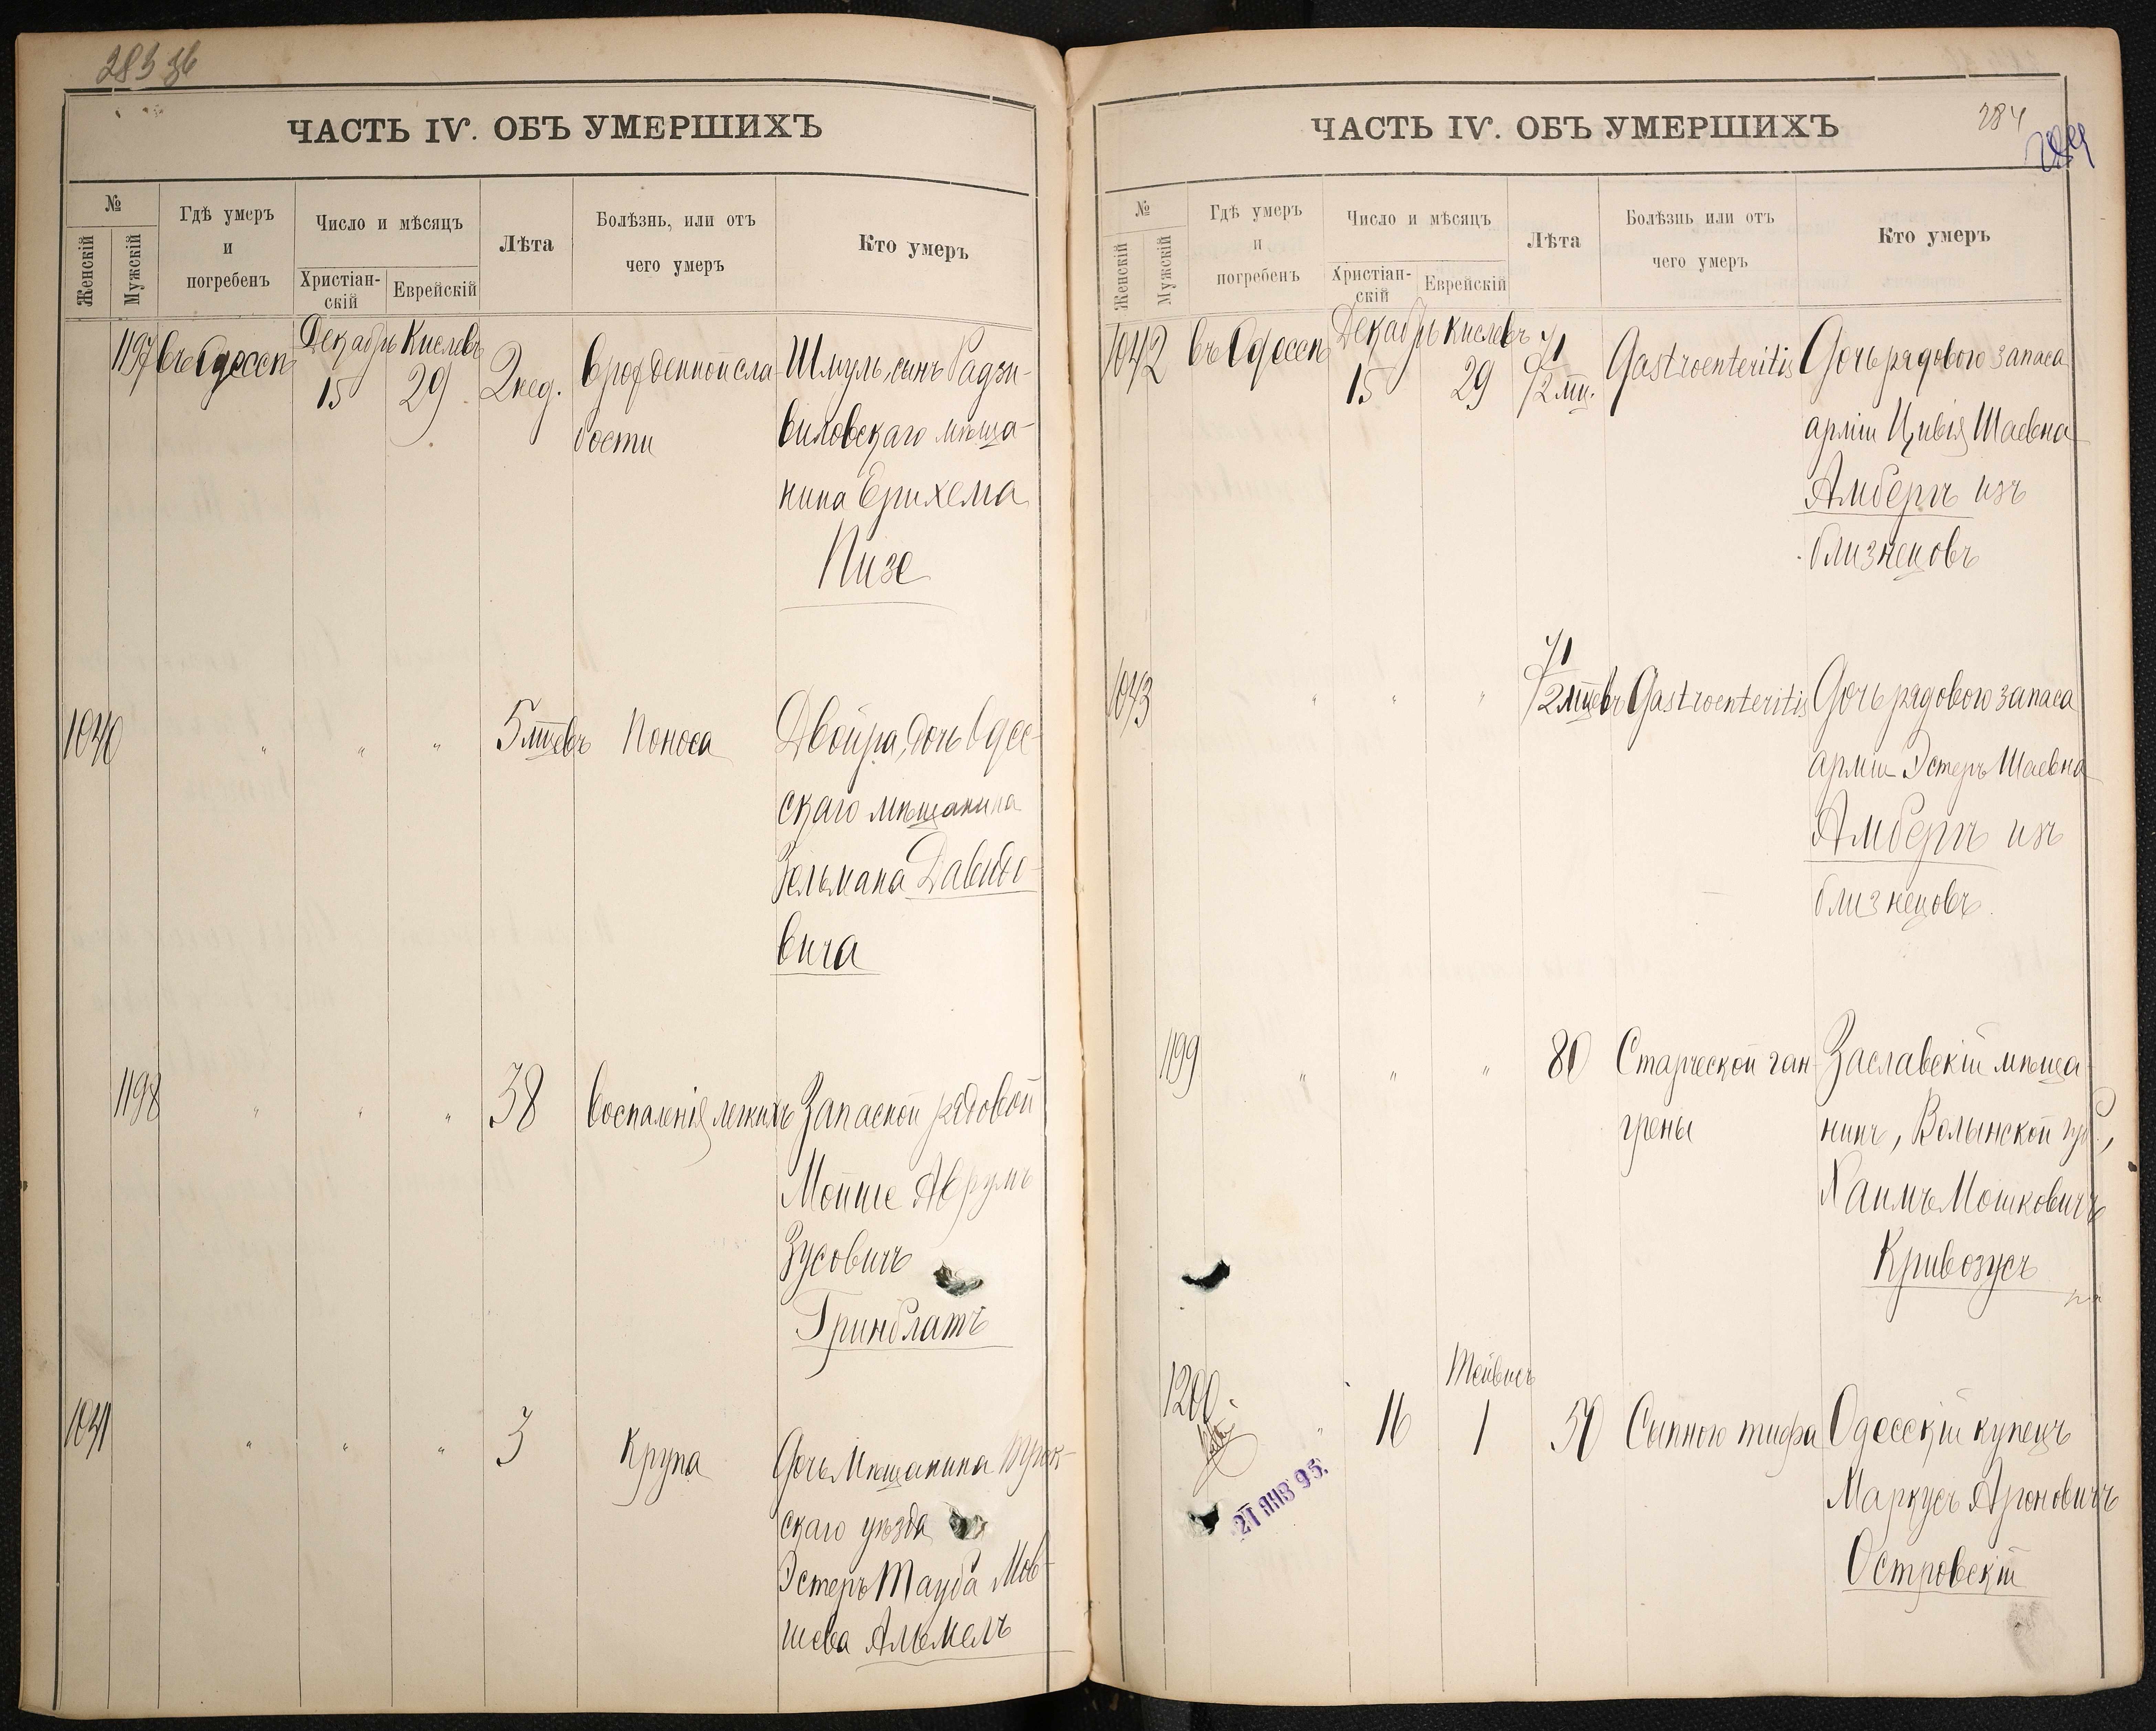 283 зб
ЧАСТЬ IV. ОБЪ УМЕРШИХЪ
№
Женскій
Мужскій
Гдѣ умеръ
и
погребенъ
Число и мѣсяцъ
Христіан-
скій
Еврейскій
Лѣта
Болѣзнь, или отъ
чего умеръ
Кто умеръ
1197 въ Одессѣ Декабрь Кислевъ 2 нед. врожденной сла- Шмуль, сынъ Радзи-
15 29
бости виловскаго мѣща-
нина Ерихема
Пизе
1040 " " " 5 мѣцевъ Поноса Двойра, дочь Одес-
скаго мѣщанина
Зельмана Давидо-
вича
1198 " " " 38 Воспаленія легкихъ Запасной рядовой
Мойше Аврумъ
Зусовичъ
Гринблатъ
1041 " " " 3 Крупа Дочь Мѣщанина Трок-
скаго уѣзда
Эстеръ Тауба Мов-
шева Альмелъ
ЧАСТЬ IV. ОБЪ УМЕРШИХЪ
284
284
№
Женскій
Мужскій
Гдѣ умеръ
и
погребенъ
Число и мѣсяцъ
Христіан-
скій
Еврейскій
Лѣта
Болѣзнь или отъ
чего умеръ
Кто умеръ
1042 въ Одессѣ Декабрь Кислевъ Gastroenteritis Дочь рядового запаса
15 29 1/2 мц.
арміи Цивія Шаевна
Амбергъ изъ
близнецовъ
1043 " " " 1/2 мцевъ Gastroenteritis Дочь рядового запаса
арміи Эстеръ Шаевна
Амбергъ изъ
близнецовъ.
1199 " " " 80 Старческой ган- Заславскій мѣща-
грены нинъ, Волынской губ.,
Хаимъ Мошковичъ
Кривозусъ
Тейвисъ
1200 " 16 1 50 Сыпного тифа Одесскій купецъ
Маркусъ Ароновичъ
Островскій
21 ЯНВ 95.